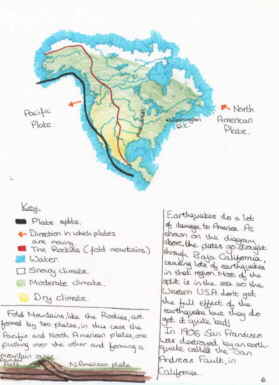 Pacific
Plate.
Washington
D.C.
North
American
Plate.
Key.
Plate splits.
Direction in which plates
are moving
The Rockies (fold mountains)
Water.
Snowy climate.
Moderate climate.
Dry climate.
Fold Mountains, like the Rockies, are
formed by two plates, in this case the
Pacific and North American plates, one
pushing over the other and forming a
mountain
N.American plate.
Earthquakes do a lot
of damage to America. As
shown on the diagram
above, the plates go straight
through Baja California,
causing lots of earthquakes
in that region. Most of the
split is in the sea so the
Western USA don't get
the full effect of the
earthquake but they do
get it quite bad.
In 1906 San Francisco
was destroyed by an earth
quake called the "San
Andreas Fault, in
California.